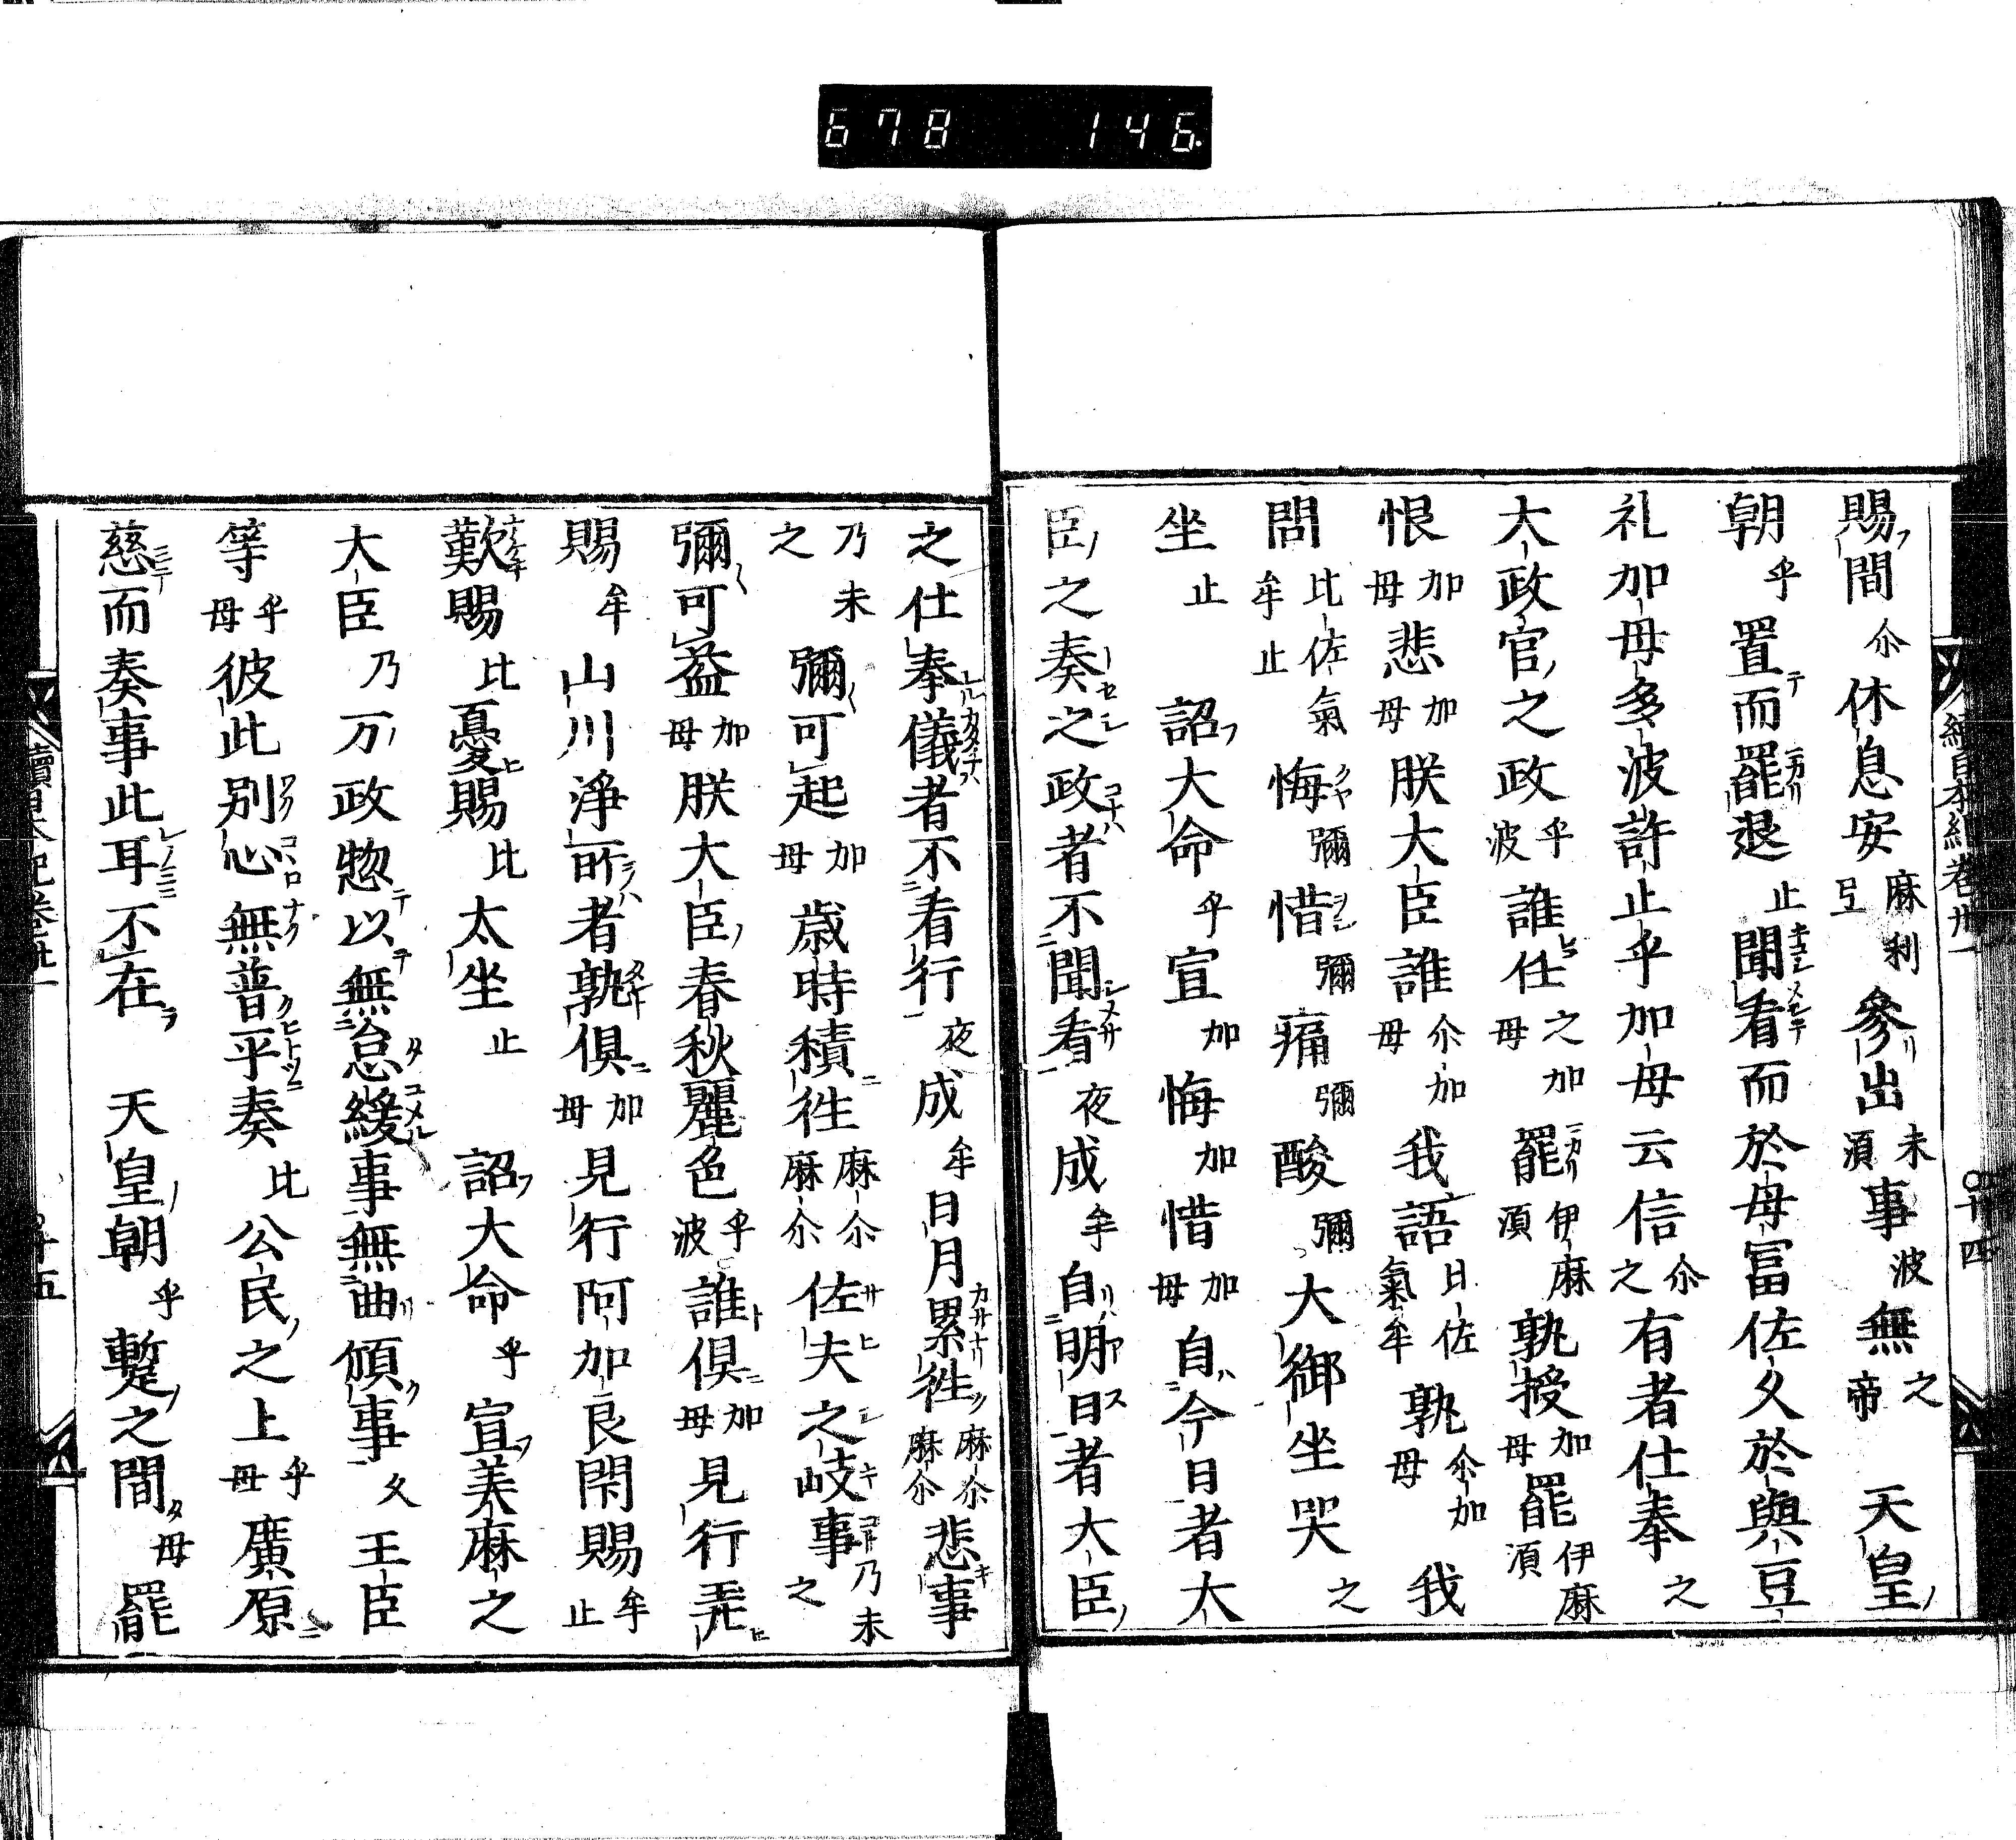 678 146.
續日本紀卷卅一
〇十四
賜間尒休息安麻利弖參出未須事波無之帝天皇
朝乎置而罷退止聞看而於母富佐久於與豆
礼加母多波許止乎加母云信尒之有者仕奉之
大政官之政乎波誰任之加母罷伊麻須孰授加母罷伊麻須
恨加母悲加母朕大臣誰尒加母我語比佐氣牟孰尒加母我
問比佐氣牟止悔彌惜彌痛彌酸彌大御坐哭之
坐止詔大命乎宣加悔加惜加母自今日者大
臣之奏之政者不聞看夜成牟自明日者大臣
之仕奉儀者不看行夜成牟日月累往麻麻尒尒悲事
乃未之彌可起加母歳時積往麻麻尒尒佐夫之岐事乃未之
彌可益加母朕大臣春秋麗色乎波誰俱加母見行弄
賜牟山川淨所者孰俱加母見行阿加良閇賜牟止
歎賜比憂賜比太坐止詔大命乎宣美麻之
大臣乃万政惣以無怠緩事無曲傾事久王臣
等乎母彼此別心無普平奏比公民之上乎母廣厚
慈而奏事此耳不在天皇朝乎暫之間母罷
續日本紀卷卅一
〇十五